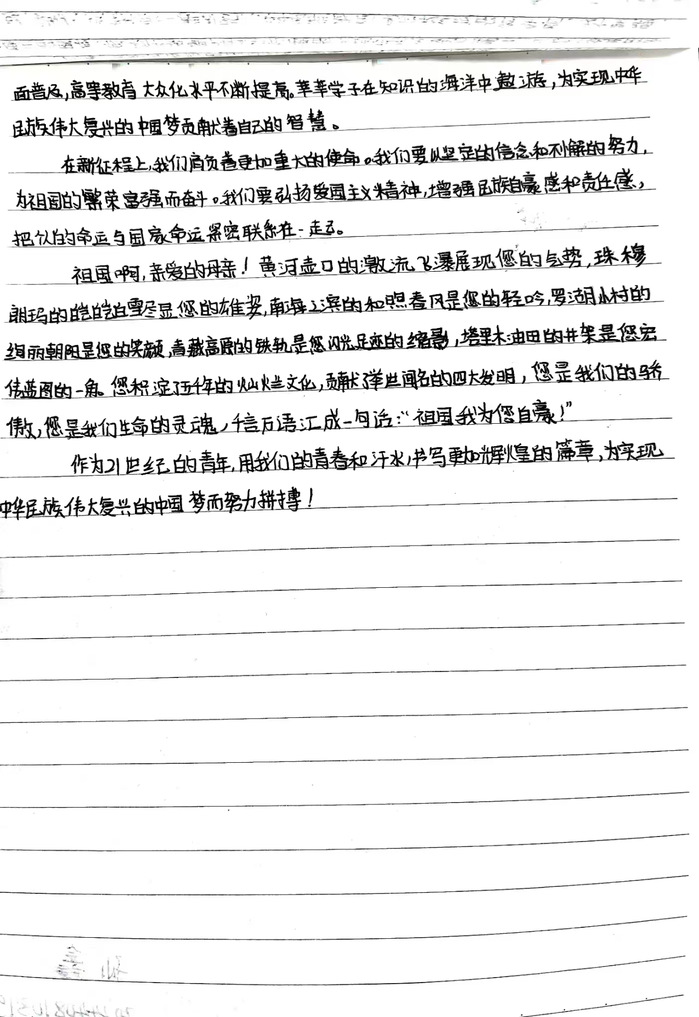 面普及,高等教育大众化水平不断提高。莘莘学子在知识的海洋中遨游,为实现中华
民族伟大复兴的中国梦贡献着自己的智慧。
在新征程上,我们肩负着更加重大的使命。我们要以坚定的信念和不懈的努力,
为祖国的繁荣富强而奋斗。我们要弘扬爱国主义精神,增强民族自豪感和责任感,
把个人的命运与国家命运紧密联系在一起。
祖国啊,亲爱的母亲!黄河壶口的激流飞瀑展现您的气势,珠穆
朗玛的皑皑白雪尽显您的雄姿,南海之滨的和煦春风是您的轻吟,罗湖小村的
绚丽朝阳是您的笑颜,青藏高原的铁轨是您闪光足迹的缩影,塔里木油田的井架是您宏
伟蓝图的一角。您积淀了五千年的灿烂文化,贡献了举世闻名的四大发明,您是我们的骄
傲,您是我们生命的灵魂,千言万语汇成一句话:“祖国我为您自豪!”
作为21世纪的青年,用我们的青春和汗水,书写更加辉煌的篇章,为实现
中华民族伟大复兴的中国梦而努力拼搏!